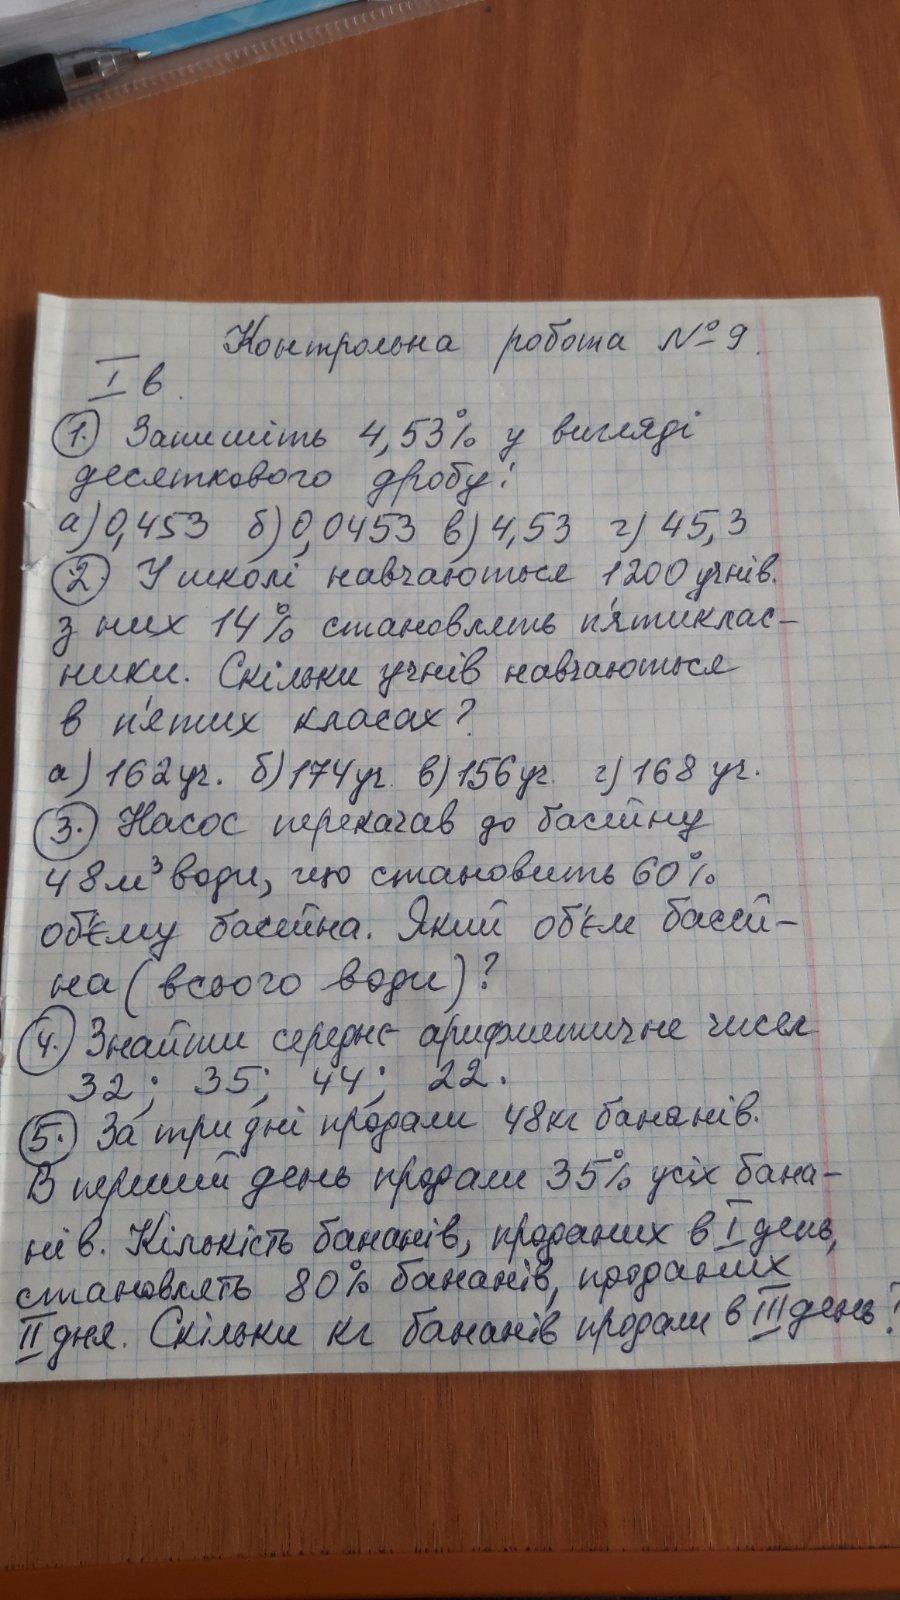 Контрольна робота № 9.
I в.
1. Запишіть 4,53% у вигляді
десяткового дробу:
а) 0,453 б) 0,0453 в) 4,53 г) 45,3
2. У школі навчаються 1200 учнів.
З них 14% становлять п'ятиклас-
ники. Скільки учнів навчаються
в п'ятих класах?
а) 162 уч. б) 174 уч. в) 156 уч. г) 168 уч.
3. Насос перекачав до басейну
48 м³ води, що становить 60%
об'єму басейна. Який об'єм басей-
на (всього води)?
4. Знайти середнє арифметичне чисел
32; 35; 44; 22.
5. За три дні продали 48 кг бананів.
В перший день продали 35% усіх бана-
нів. Кількість бананів, проданих в I день,
становлять 80% бананів, проданих
II дня. Скільки кг бананів продали в III день?